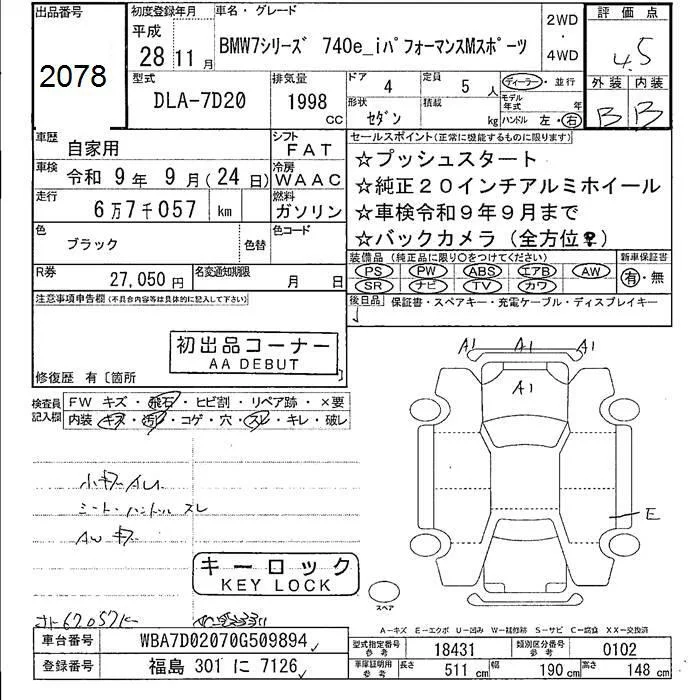 出品番号
2078
初度登録年月
平成
28年 11月
車名・グレード
BMW7シリーズ 740e_iパフォーマンスMスポーツ
2WD
・
4WD
評価点
4.5
外装 内装
B B
型式
DLA-7D20
排気量
1998 CC
ドア 4
定員 5 人
形状 セダン
積載 kg
ディーラー・並行
モデル年式 年
ハンドル 左・右
車歴 自家用
シフト FAT
車検 令和 9年 9月(24日)
冷房 WAAC
走行 6万7千057 km
燃料 ガソリン
色 ブラック
色替
色コード
R券 27,050円
名変通知期限 月 日
セールスポイント(正常に機能するものに限ります)
☆プッシュスタート
☆純正20インチアルミホイール
☆車検令和9年9月まで
☆バックカメラ(全方位♀)
装備品(純正品に限り○をつけてください)
PS PW ABS エアB AW
SR ナビ TV カワ
新車保証書
有・無
後日品 保証書・スペアキー・充電ケーブル・ディスプレイキー
注意事項申告欄(不具合内容等は具体的に記入して下さい)
初出品コーナー
AA DEBUT
修復歴 有〔箇所
検査員記入欄
FW キズ・飛石・ヒビ割・リペア跡・×要
内装 キズ・汚レ・コゲ・穴・スレ・キレ・破レ
小キズAU
シート・ハンドル スレ
AWキズ
キーロック
KEY LOCK
A1 A1 A1
A1
E
スペア
A−キズ E−エクボ U−凹み W−補修跡 S−サビ C−腐食 XX−交換済
車台番号 WBA7D02070G509894
登録番号 福島 301 に 7126
型式指定番号 参考 18431
類別区分番号 参考 0102
車庫証明用 参考 長さ 511 cm 幅 190 cm 高さ 148 cm